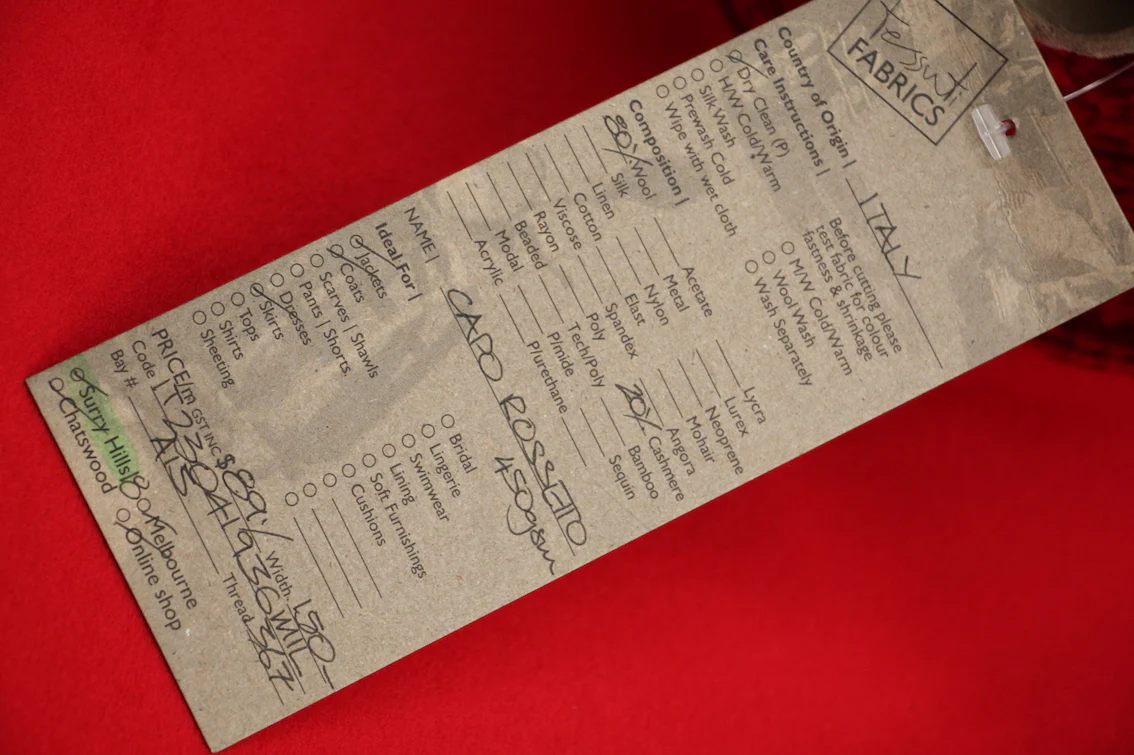 Tessuti
FABRICS
Country of Origin | ITALY
Care Instructions |
Dry Clean (P)
H/W Cold/Warm
Silk Wash
Prewash Cold
Wipe with wet cloth
Before cutting please
test fabric for colour
fastness & shrinkage
M/W Cold/Warm
Wool Wash
Wash Separately
Composition |
80% Wool
Silk
Linen
Cotton
Viscose
Rayon
Beaded
Modal
Acrylic
Acetate
Metal
Nylon
Elast
Spandex
Poly
Tech/Poly
P/mide
P/urethane
Lycra
Lurex
Neoprene
Mohair
Angora
20% Cashmere
Bamboo
Sequin
NAME | CAPO ROSSETTO
450gsm
Ideal For |
Jackets
Coats
Scarves | Shawls
Pants | Shorts
Dresses
Skirts
Tops
Shirts
Sheeting
Bridal
Lingerie
Swimwear
Lining
Soft Furnishings
Cushions
PRICE/m GST INC $89.- Width 150-
Code
Bay #. A15 Thread 367
Surry Hills Melbourne
Chatswood Online shop